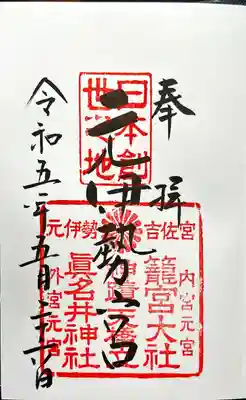 奉拝
日本創
世
地
元伊勢
宮
元伊勢 吉佐宮
内宮元宮
籠宮大社
眞名井神社
外宮元宮
令和五年五月
日